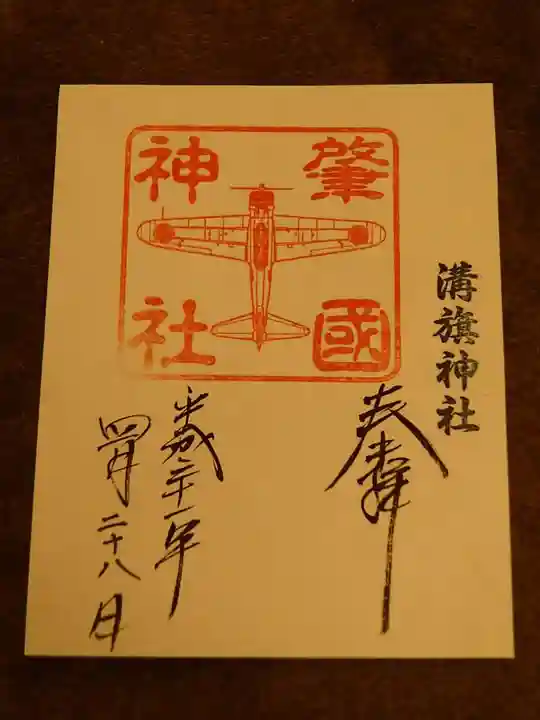 溝旗神社
肇國
神社
奉拝
平成二十一年
四月二十八日